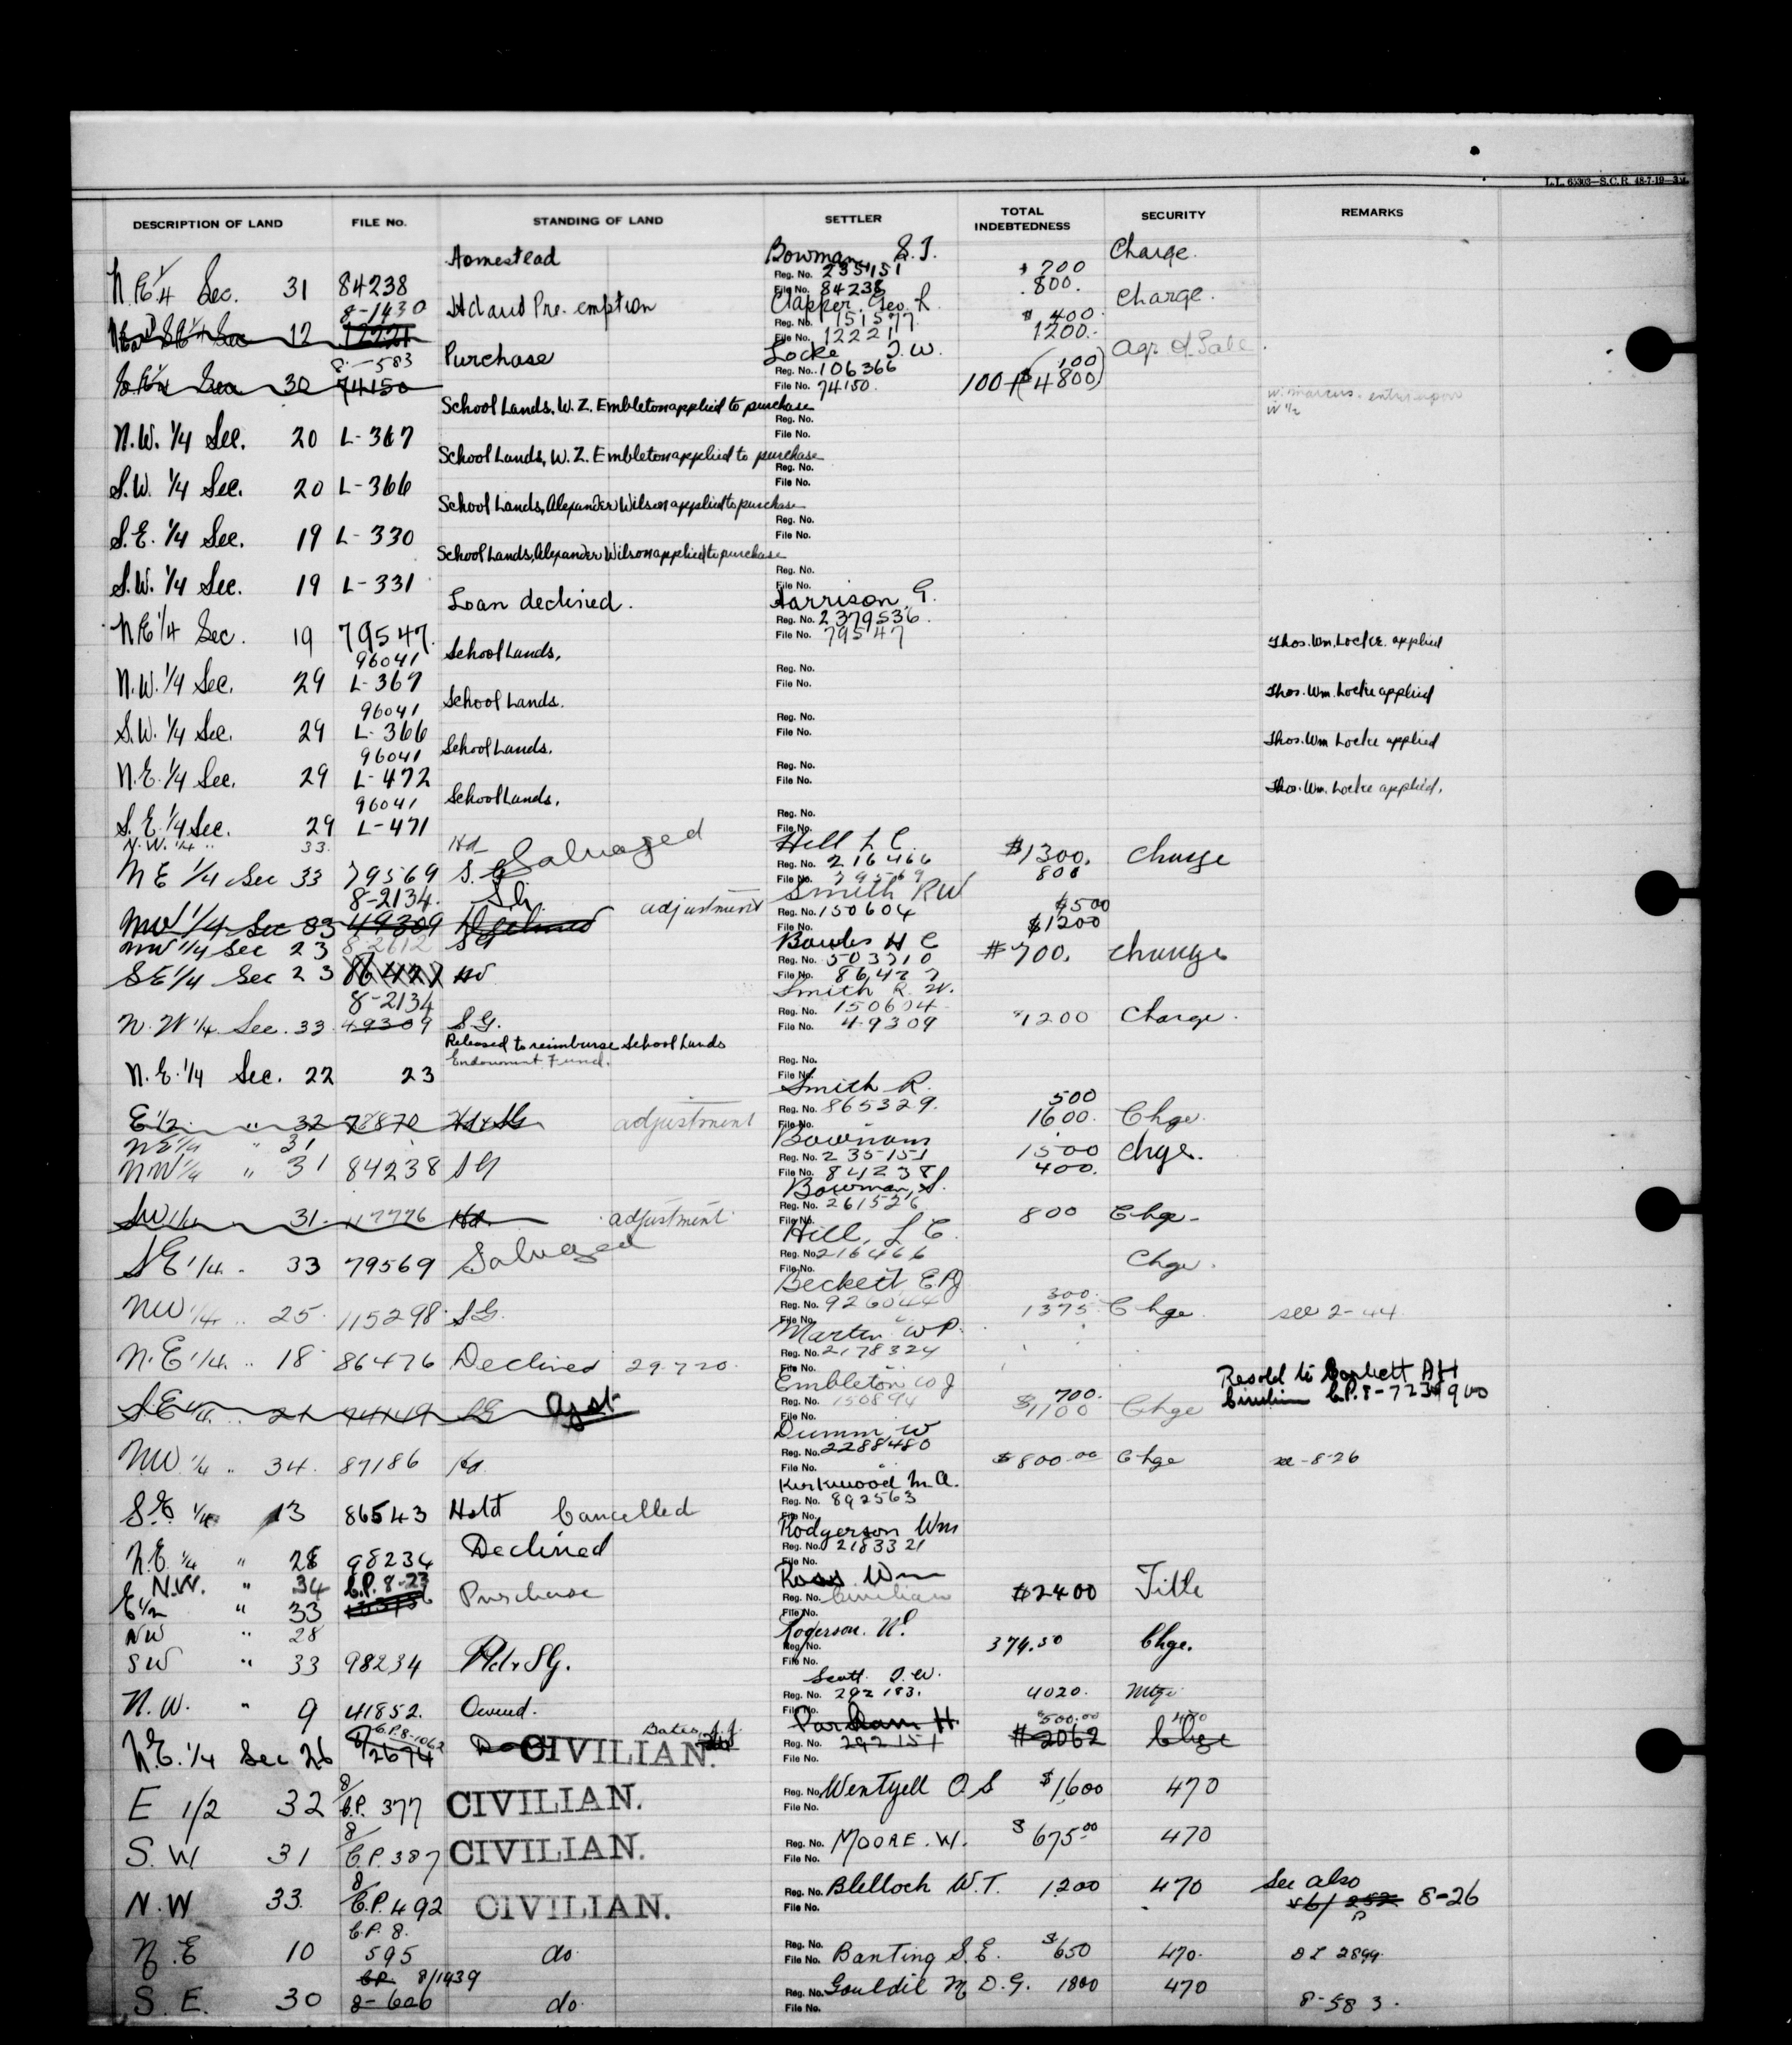 L.L. 65303—S.C.R. 48-7-19—3M
DESCRIPTION OF LAND FILE No. STANDING OF LAND SETTLER TOTAL INDEBTEDNESS SECURITY REMARKS
Homestead Bowman S.J. Charge.
N.E 1/4 Sec. 31 84238 Reg. No. 235151 $ 700
File No. 84238 800.
8-1430 Hd and Pre-emption Clapper, Geo. R. $ 400 Charge.
Sec 12 12221 Reg. No. 151577 1200.
File No. 12221
8-583 Purchase Locke T.W. (100) Agr. of Sale.
Sec 30 74150 Reg. No. 106366 100 + ($4800)
File No. 74150.
School Lands, W.Z. Embleton applied to purchase W. Marcus. entry upon W 1/2
N.W. 1/4 Sec. 20 L-367 Reg. No.
File No.
School Lands, W.Z. Embleton applied to purchase
S.W. 1/4 Sec. 20 L-366 Reg. No.
File No.
School Lands, Alexander Wilson applied to purchase
S.E. 1/4 Sec. 19 L-330 Reg. No.
File No.
School Lands, Alexander Wilson applied to purchase
S.W. 1/4 Sec. 19 L-331 Reg. No.
File No.
Loan declined. Harrison G.
N.E 1/4 Sec. 19 79547. Reg. No. 2379536.
File No. 79547
96041 School Lands, Thos. Wm. Locke applied
N.W. 1/4 Sec. 29 L-367 Reg. No.
File No.
96041 School Lands. Thos. Wm. Locke applied
S.W. 1/4 Sec. 29 L-366 Reg. No.
File No.
96041 School Lands. Thos. Wm Locke applied
N.E. 1/4 Sec. 29 L-472 Reg. No.
File No.
96041 School Lands, Thos. Wm. Locke applied.
S.E. 1/4 Sec. 29 L-471 Reg. No.
File No.
N.W. 1/4 " 33. Hd Salvaged Hill L C.
N E 1/4 Sec 33 79569 S.G Reg. No. 216466 $1300. 800 Charge
File No. 79569
8-2134. S.G. adjustment Smith RW $500
NW 1/4 Sec 33 49309 Declined Reg. No. 150604 $1200
File No.
NW 1/4 Sec 23 8-2612 S G Bowles H C
SE 1/4 Sec 23 86427 Hd Reg. No. 503710 #700. Charge
File No. 86427
8-2134 Smith R. W.
N.W 1/4 Sec. 33 49309 S.G. Reg. No. 150604 $1200 Charge.
File No. 49309
Released to reimburse School Lands
Endowment Fund.
N.E. 1/4 Sec. 22 23 Reg. No.
File No.
Smith R. 500
E 1/2 " 32 78870 Hd & SG adjustment Reg. No. 865329. 1600. Chge.
File No.
NE 1/4 " 31 Bowman
NW 1/4 " 31 84238 S G Reg. No. 235151 1500 400. Chge.
File No. 84238
Bowman, S.
SW 1/4 31. 117776 Hd. adjustment. Reg. No. 261526 800 Chge-
File No.
Hill, L C.
S E 1/4. 33 79569 Salvaged Reg. No. 216466 Chge.
File No.
Beckett E.
NW 1/4. " 25. 115298. S G. Reg. No. 926044 300. 1375 Chge. see 2-44
File No.
Martin W P.
N.E 1/4. " 18 86476 Declined 29.7.20. Reg. No. 2178324
File No.
Embleton W J Resold to Corbett A H
SE 1/4. " 21 74149 S G Ajst Reg. No. 150894 700. $1100 Chge Civilian C.P. 8-723 $900
File No.
Dumm, W
NW 1/4 " 34. 87186 Hd. Reg. No. 2288480 $800.00 Chge see-8-26
File No.
Kirkwood M.A.
S.E. 1/4 13 86543 Hold Cancelled Reg. No. 892563
File No.
Rodgerson Wm
N.E. 1/4 " 28 98234 Declined Reg. No. 2183321
File No.
N.W. " 34 C.P. 8-23 Ross Wm
E 1/2 " 33 Purchase Reg. No. Civilian #2400 Title
File No.
NW " 28 Rogerson. W.
SW " 33 98234 Hd & SG. Reg. No. 374.50 Chge.
File No.
Scott T.W.
N.W. " 9 41852. Owned. Reg. No. 292183. 4020. Mtge
File No.
C.P. 8-1062 Bates, J.J. Parkam H. $500.00 470
N.E. 1/4 Sec 26 8/2674 CIVILIAN. Reg. No. 292151 #2062 Chge
File No.
E 1/2 32 8/C.P. 377 CIVILIAN. Reg. No. Wentzell O S $1600 470
File No.
S.W 31 8/C.P. 387 CIVILIAN. Reg. No. MOORE. W. $675.00 470
File No.
N.W 33. 8/C.P. 492 CIVILIAN. Reg. No. Blelloch W.T. 1200 470 See also 8-26
File No.
N.E 10 C.P. 8. 595 do Reg. No. Banting S.E. $650 470. D I 2899.
File No.
S.E. 30 C.P. 8/1439 8-606 do. Reg. No. Gouldie M D.G. 1800 470 8-583.
File No.